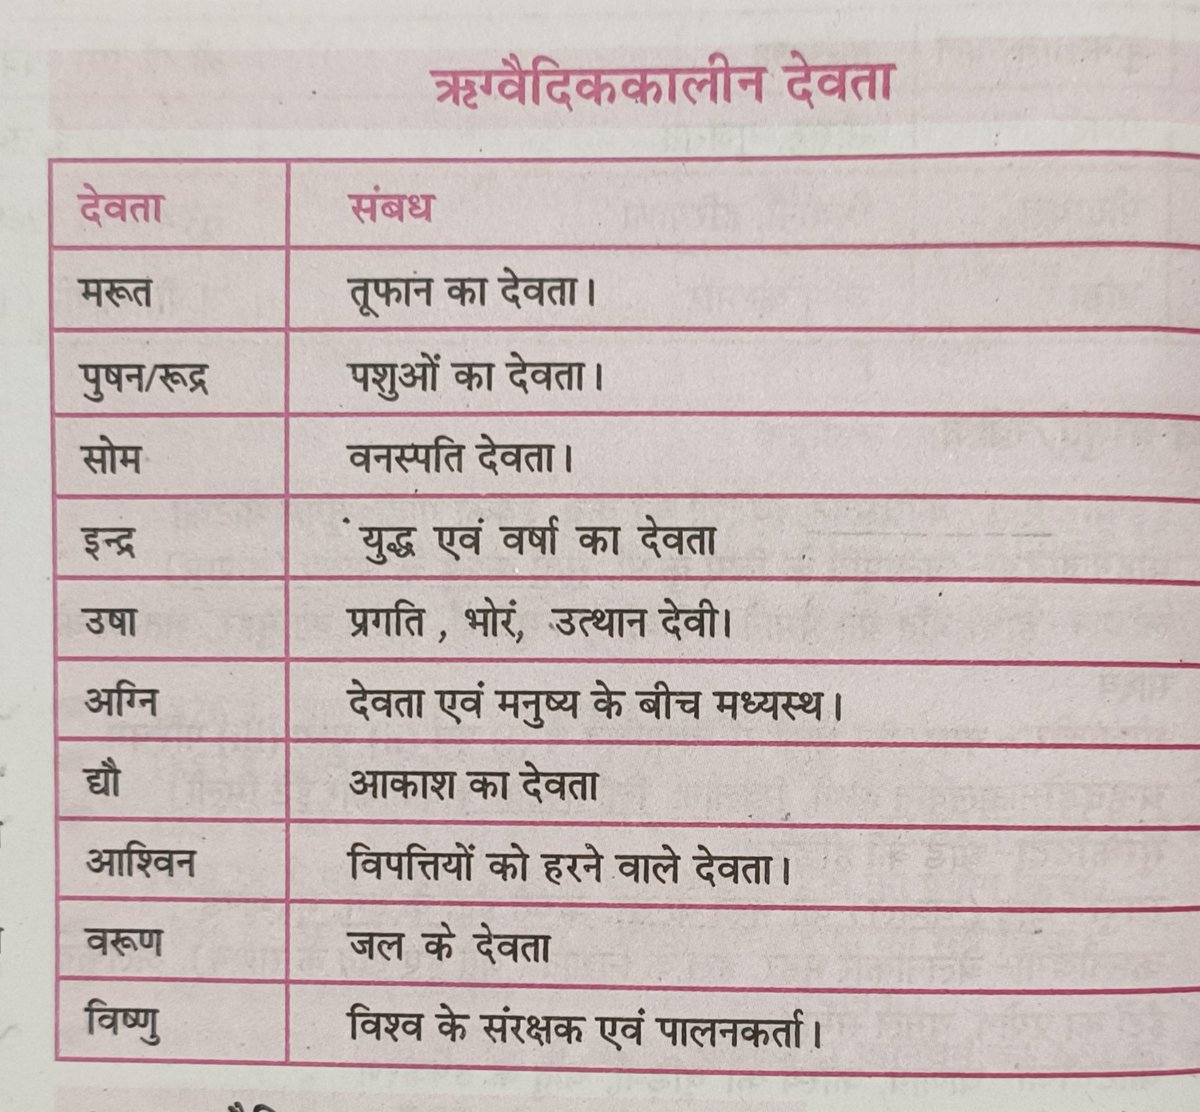 ऋग्वैदिककालीन देवता
देवता संबध
मरूत तूफान का देवता।
पुषन/रूद्र पशुओं का देवता।
सोम वनस्पति देवता।
इन्द्र युद्ध एवं वर्षा का देवता
उषा प्रगति , भोरं, उत्थान देवी।
अग्नि देवता एवं मनुष्य के बीच मध्यस्थ।
द्यौ आकाश का देवता
आश्विन विपत्तियों को हरने वाले देवता।
वरूण जल के देवता
विष्णु विश्व के संरक्षक एवं पालनकर्ता।